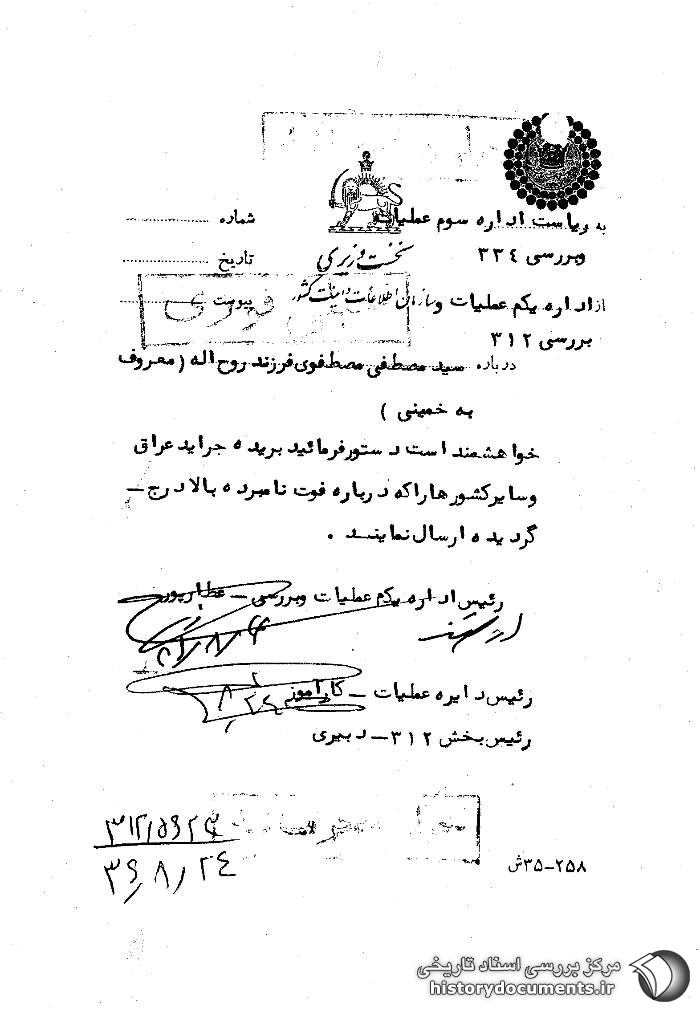 به ریاست اداره سوم عملیات
وبررسی ۳۳۴
شماره
نخست وزیری
تاریخ
سازمان اطلاعات و امنیت کشور
پیوست
از اداره یکم عملیات و
بررسی ۳۱۲
درباره سید مصطفی مصطفوی فرزند روح اله ( معروف
به خمینی )
خواهشمند است دستور فرمائید بریده جراید عراق
وسایر کشورها را که درباره فوت نامبرده بالا درج –
گردیده ارسال نمایند .
رئیس اداره یکم عملیات وبررسی – عطارپور
رئیس دایره عملیات – کارآموز
رئیس بخش ۳۱۲ – دبیری
۳۶/۸/۲۴
۳۵-۲۵۸ش
مرکز بررسی اسناد تاریخی
historydocuments.ir